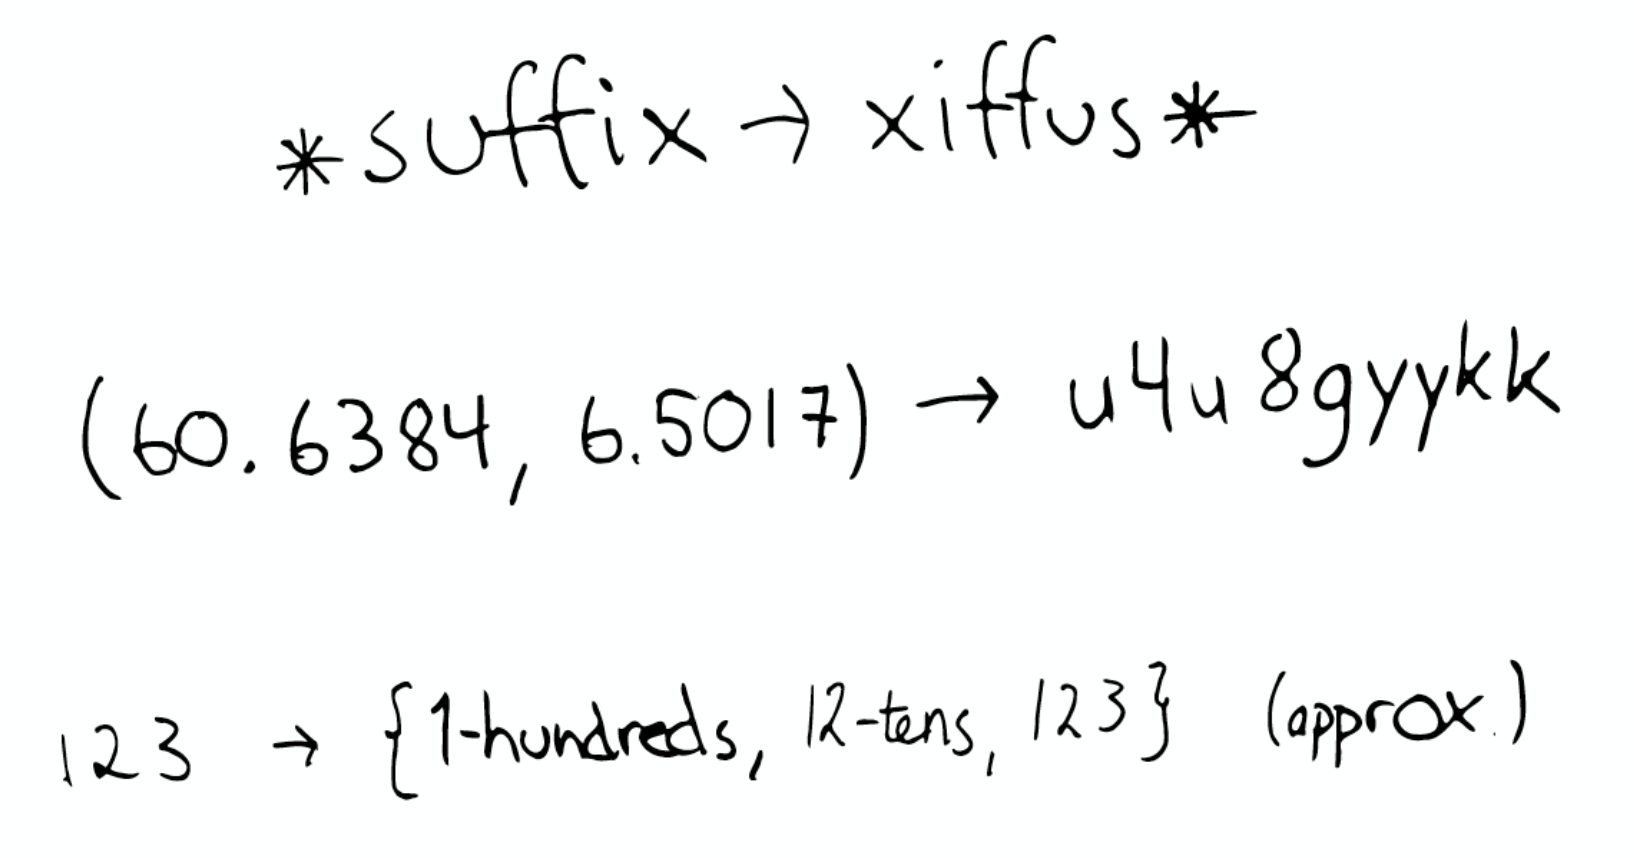 *suffix → xiffus*
(60.6384, 6.5017) → u4u8gyykk
123 → {1-hundreds, 12-tens, 123} (approx.)